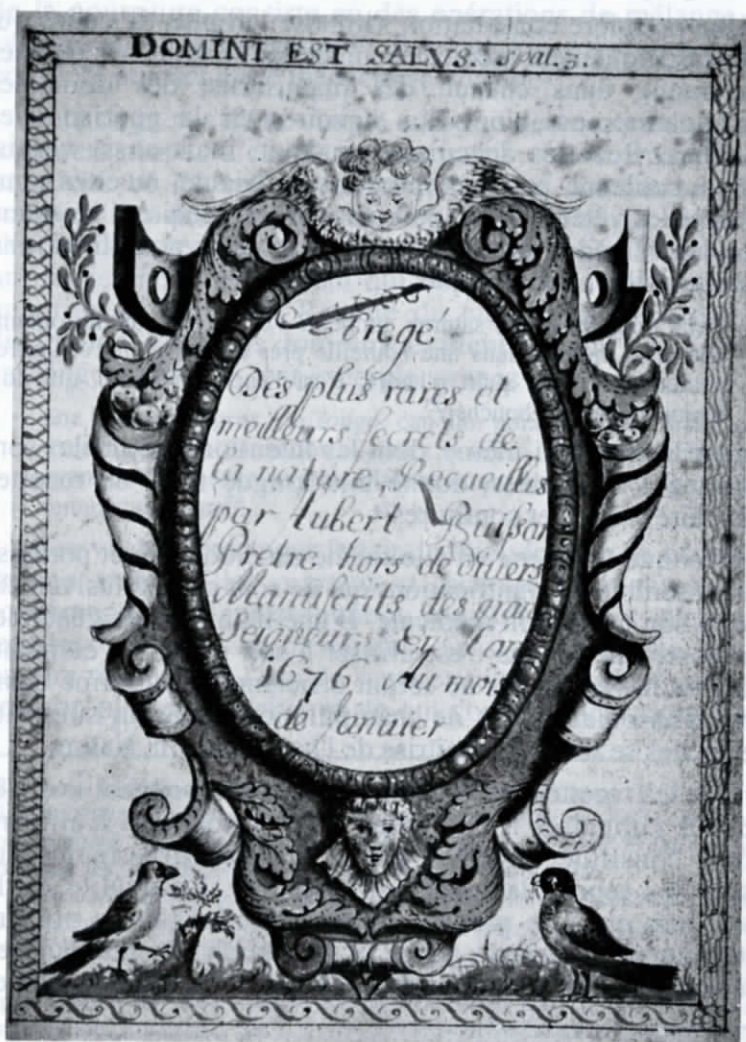 DOMINI EST SALVS. spal. 3.
Des plus rares et
meilleurs secrets de
la nature, Recueillis
par Aubert Buissar
Pretre hors de diuers
Manuscrits des gran
Seigneurs En l'an
1676 Au mois
de Januier